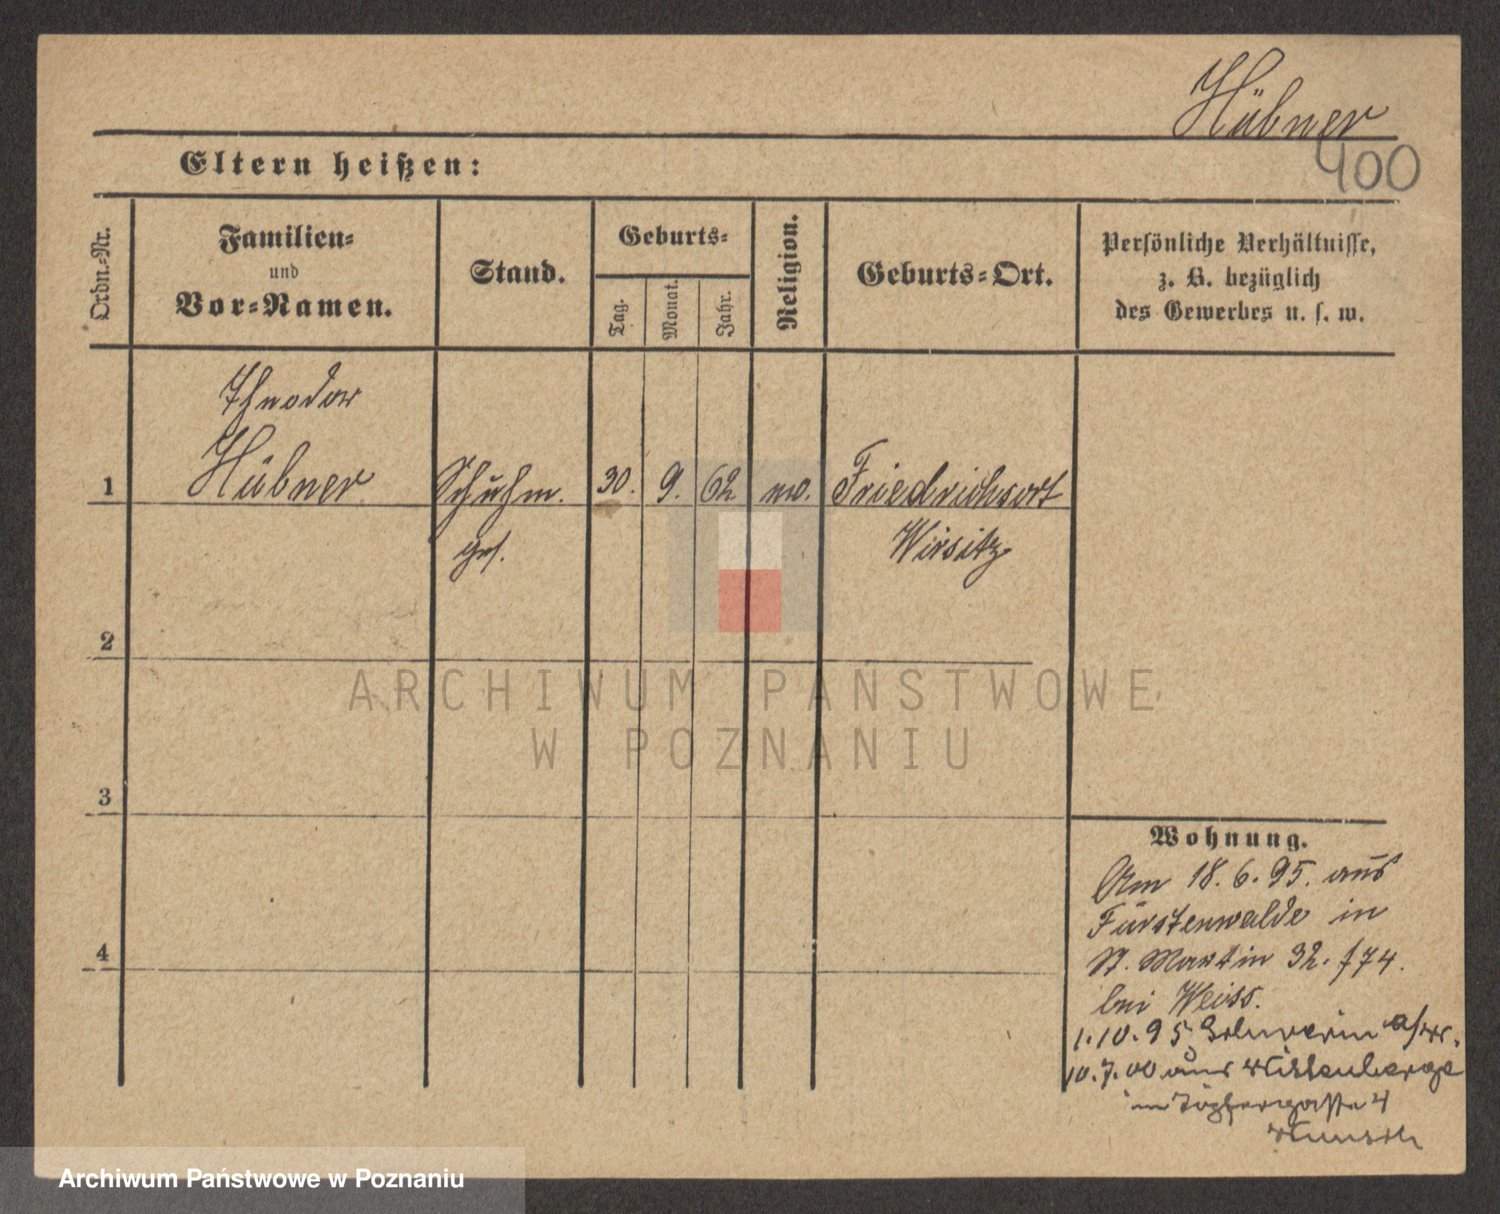 Hübner
400
Eltern heißen:
Ordn.-Nr.
Familien-
und
Vor-Namen.
Stand.
Geburts-
Tag.
Monat.
Jahr.
Religion.
Geburts-Ort.
Persönliche Verhältnisse,
z. B. bezüglich
des Gewerbes u. s. w.
Theodor
1 Hübner Schuhm. 30. 9. 62 Friedrichsort
ges. Wirsitz
2
3
4
Wohnung.
Am 18. 6. 95. aus
Fürstenwalde in
St. Martin 32. f74.
bei Weiss.
1.10.95 Schwerin a/W.
10.7.00 aus Wittenberge
in Töpfergasse 4
ARCHIWUM PAŃSTWOWE
W POZNANIU
Archiwum Państwowe w Poznaniu